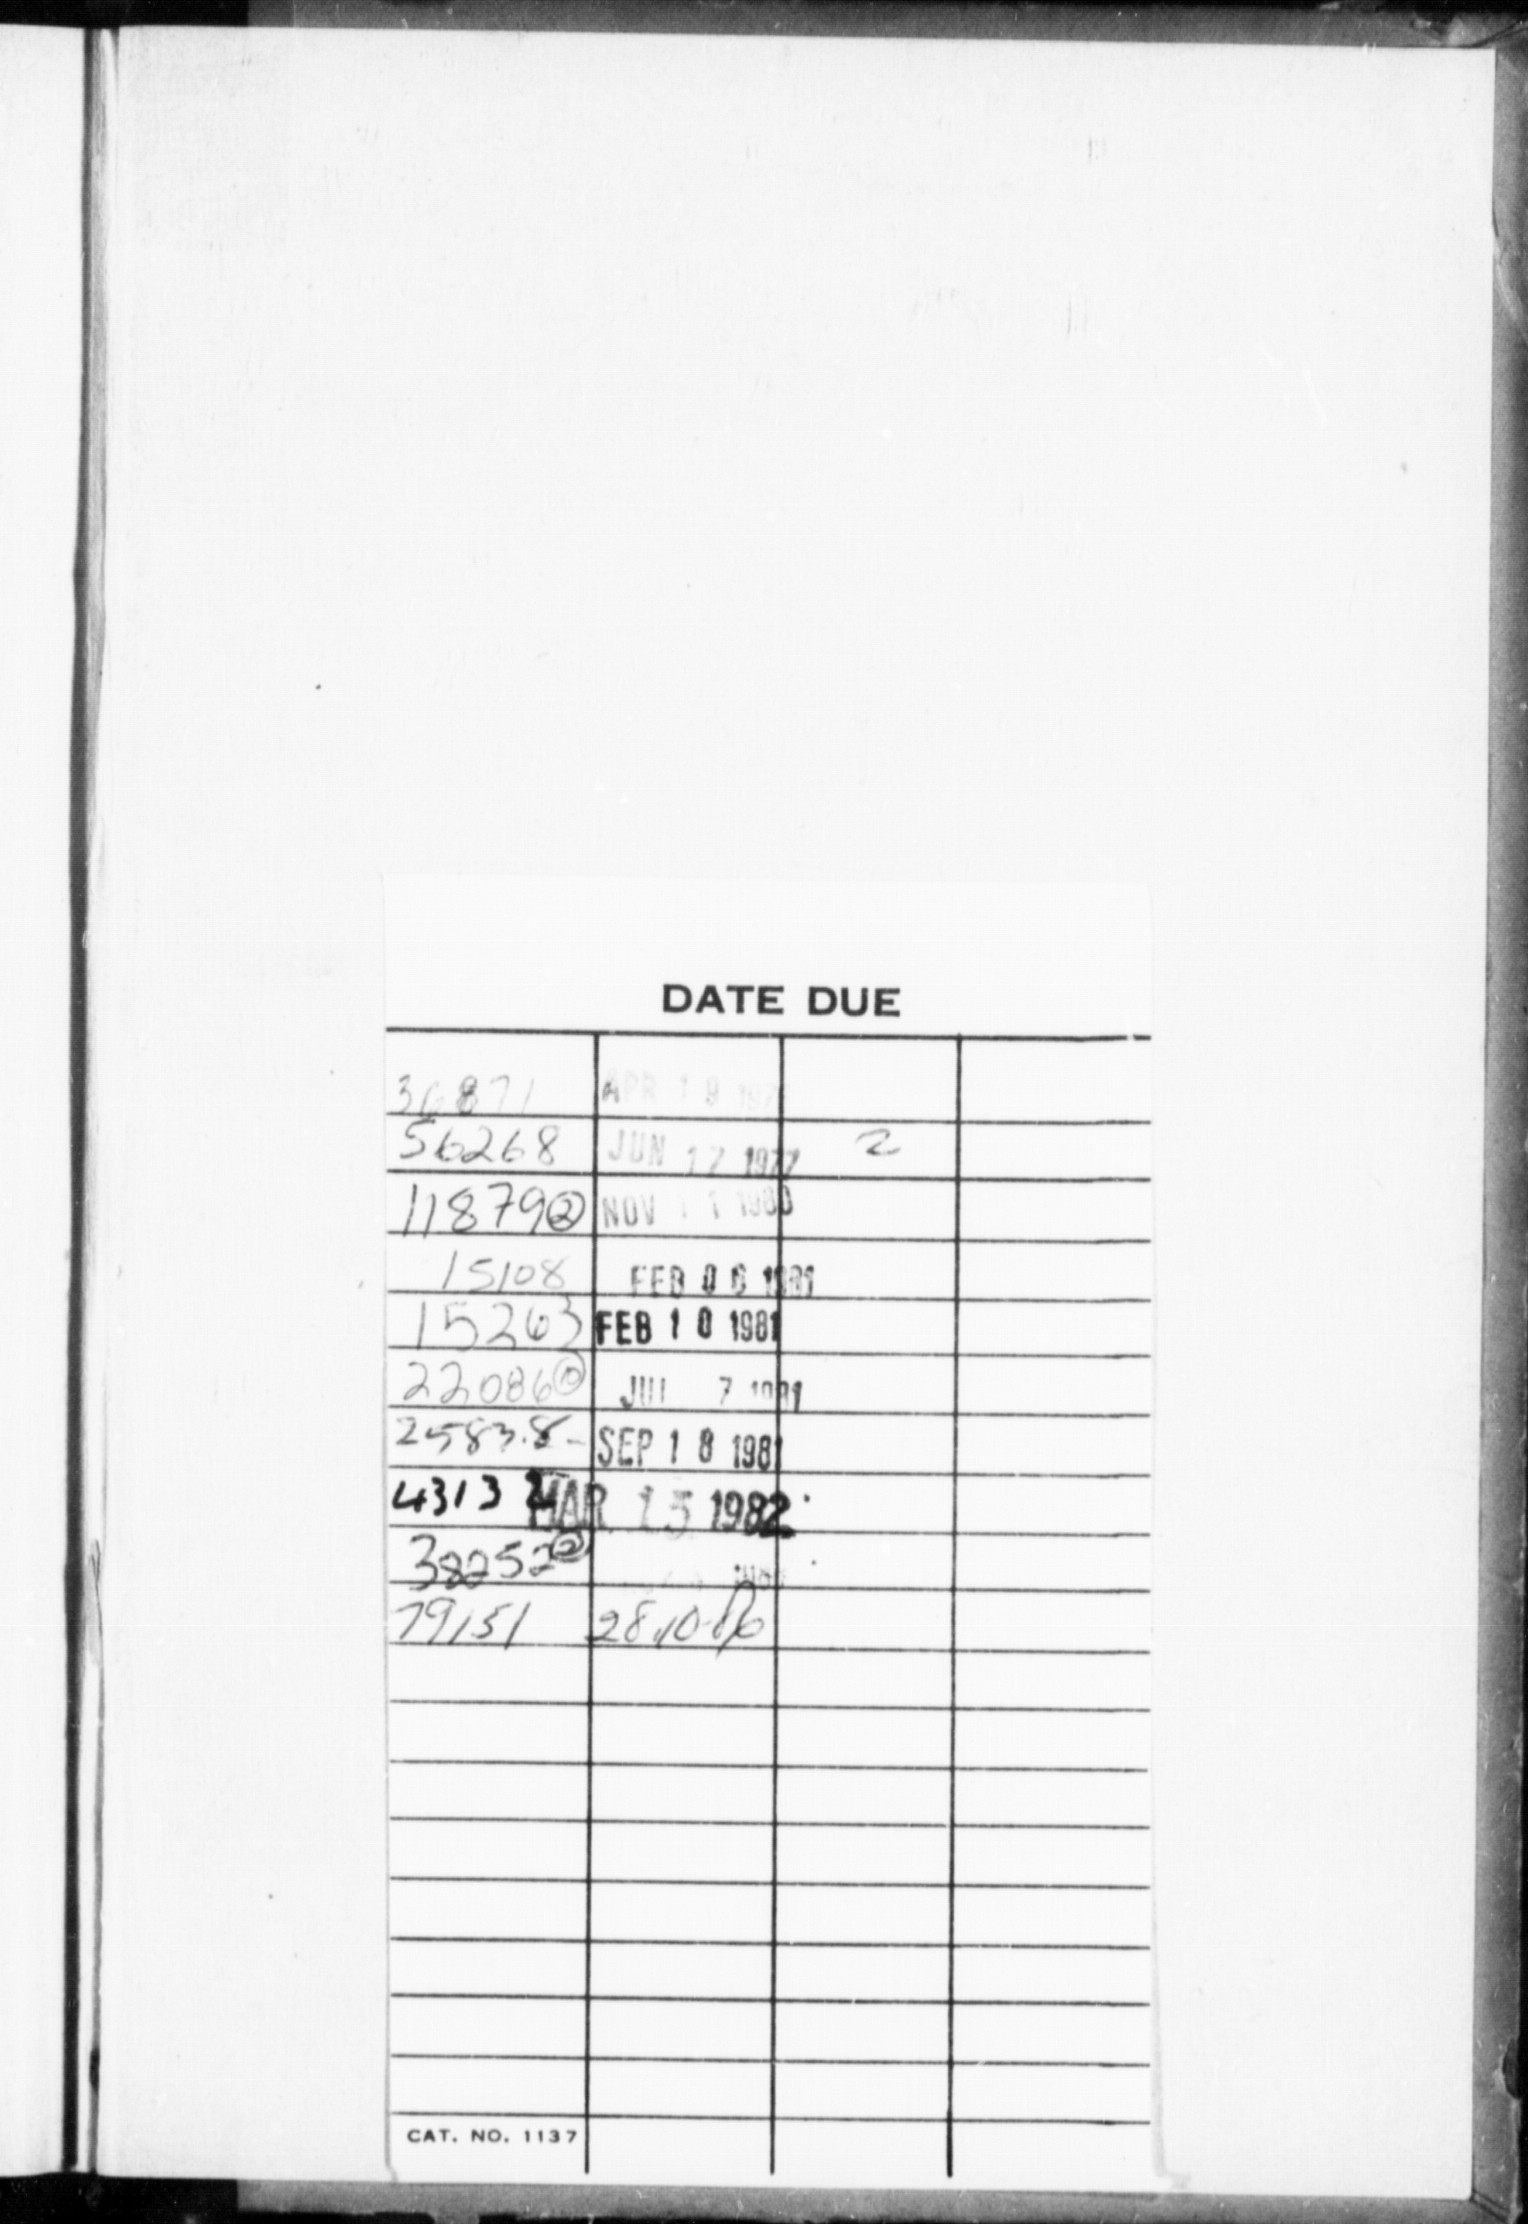 DATE DUE
36871 APR 19 197
56268 JUN 17 1977 2
11879② NOV 1 1 1980
15108 FEB 0 6 1981
15263 FEB 1 0 1981
22086⑩ JUL 7 1981
25838- SEP 1 8 1981
43132 MAR 15 1982
38252②
79151 28.10.86
CAT. NO. 1137